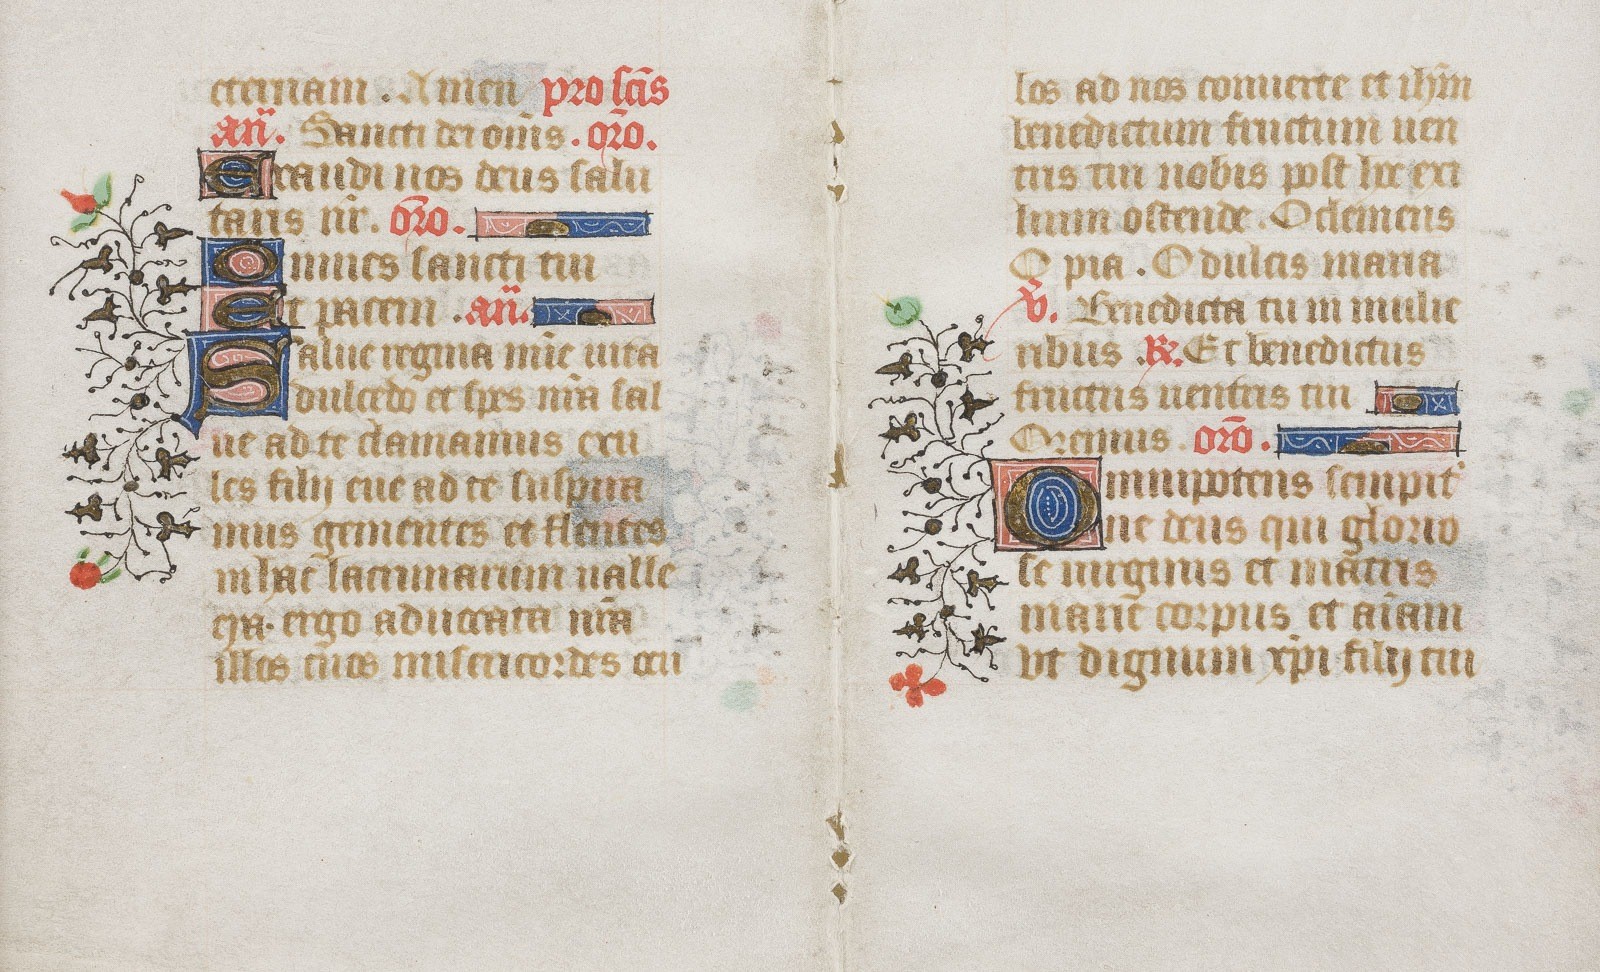 eternam . Amen pro sc̄is
an̄. Sancti dei om̄s . or̄o.
Exaudi nos deus salu
taris nr̄. or̄o.
Omnes sancti tui
Et pacem . an̄.
Salue regina mīe uita
dulcedo et spes nr̄a sal
ue ad te clamamus exu
les filij eue ad te suspira
mus gementes et flentes
in hac lacrimarum ualle
eya. ergo aduocata nr̄a
illos tuos misericordes ocu
los ad nos conuerte et ihm̄
benedictum fructum uen
tris tui nobis post hoc exi
lium ostende . O clemens
O pia . O dulcis maria
V̄. Benedicta tu in mulie
ribus . R. Et benedictus
fructus uentris tui
Oremus . or̄o .
Omnipotens sempit̉
ne deus qui glorio
se uirginis et matris
marie corpus et aīam
vt dignum xp̄i filij tui